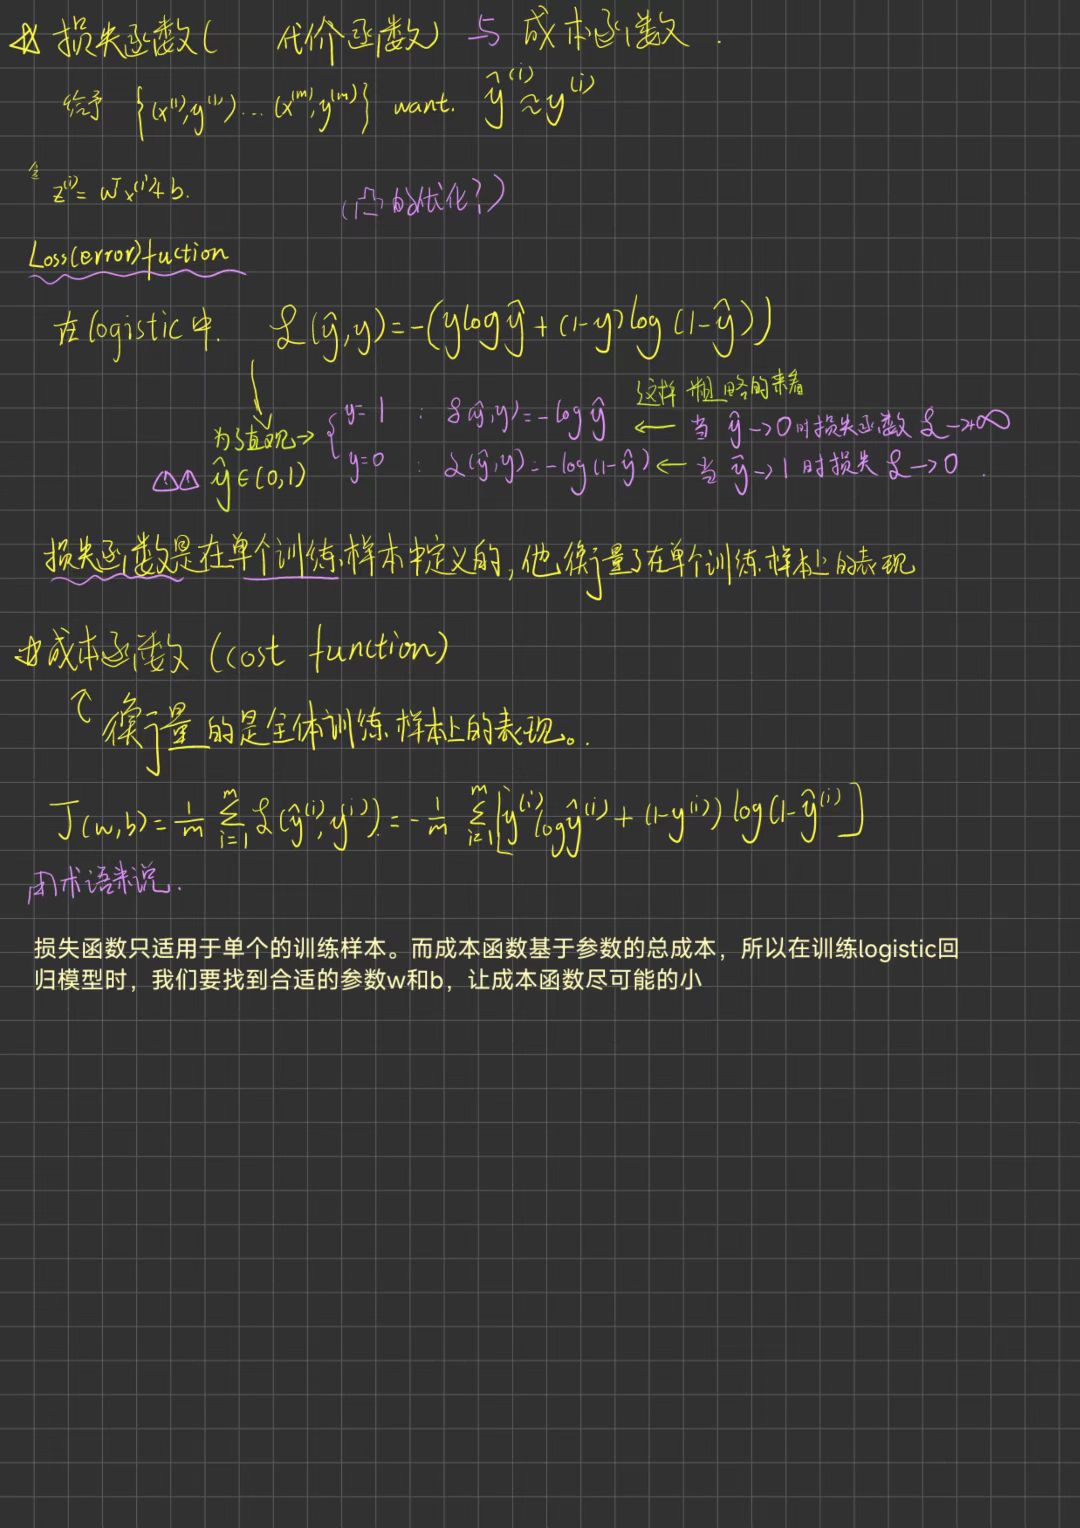 损失函数( 代价函数) 与 成本函数.
给予 {(x⁽¹⁾,y⁽¹⁾)...(x⁽ᵐ⁾,y⁽ᵐ⁾)} want. ŷ⁽ⁱ⁾≈y⁽ⁱ⁾
z⁽ⁱ⁾=wᵀx⁽ⁱ⁾+b.
(凸的优化?)
Loss(error)fuction
在logistic中. ℒ(ŷ,y)=-(ylogŷ+(1-y)log(1-ŷ))
这样粗略的来看
为了直观→ {y=1 : ℒ(ŷ,y)=-logŷ ← 当ŷ→0时损失函数ℒ→+∞
y=0 : ℒ(ŷ,y)=-log(1-ŷ) ← 当ŷ→1时损失ℒ→0.
ŷ∈(0,1)
损失函数是在单个训练样本中定义的,他衡量了在单个训练样本上的表现
成本函数(cost function)
衡量的是全体训练样本上的表现。.
J(w,b)=1/m ∑ᵢ₌₁ᵐ ℒ(ŷ⁽ⁱ⁾,y⁽ⁱ⁾)=-1/m ∑ᵢ₌₁ᵐ[y⁽ⁱ⁾logŷ⁽ⁱ⁾+(1-y⁽ⁱ⁾)log(1-ŷ⁽ⁱ⁾]
用术语来说.
损失函数只适用于单个的训练样本。而成本函数基于参数的总成本，所以在训练logistic回
归模型时，我们要找到合适的参数w和b，让成本函数尽可能的小